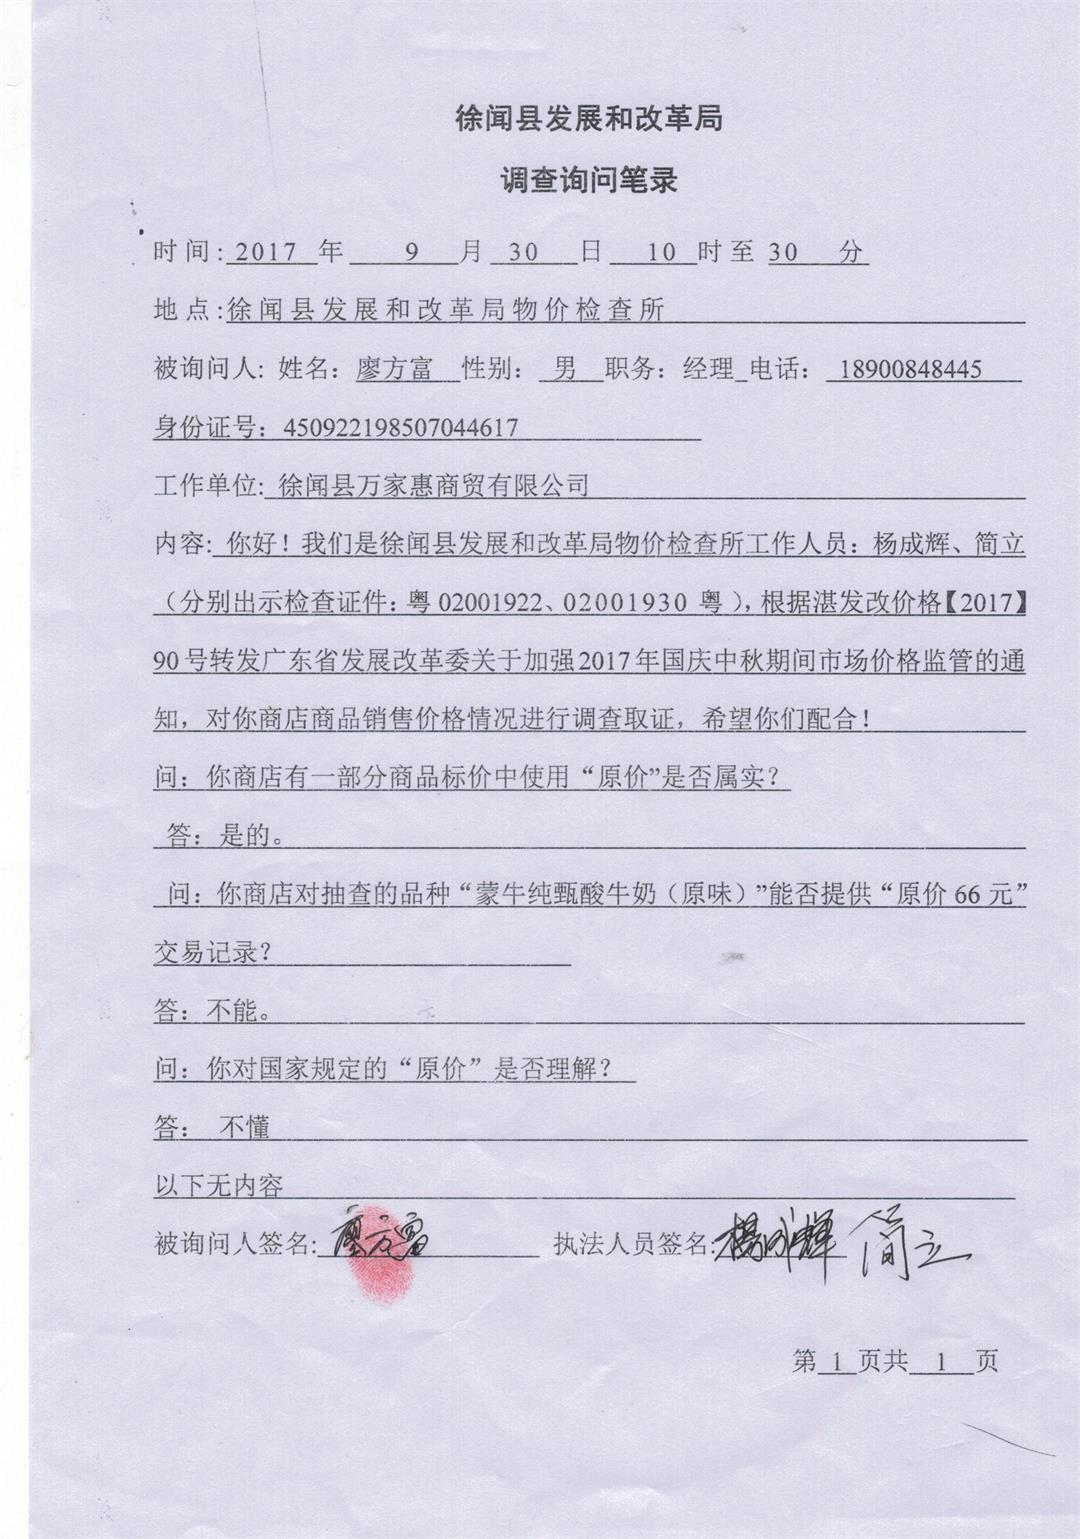 徐闻县发展和改革局
调查询问笔录
时间: 2017 年 9 月 30 日 10 时至 30 分
地点:徐闻县发展和改革局物价检查所
被询问人: 姓名：廖方富 性别： 男 职务：经理 电话： 18900848445
身份证号：450922198507044617
工作单位: 徐闻县万家惠商贸有限公司
内容: 你好！我们是徐闻县发展和改革局物价检查所工作人员：杨成辉、简立
（分别出示检查证件：粤 02001922、02001930 粤 ），根据湛发改价格【2017】
90 号转发广东省发展改革委关于加强 2017 年国庆中秋期间市场价格监管的通
知，对你商店商品销售价格情况进行调查取证，希望你们配合！
问：你商店有一部分商品标价中使用“原价”是否属实？
答：是的。
问：你商店对抽查的品种“蒙牛纯甄酸牛奶（原味）”能否提供“原价 66 元”
交易记录？
答：不能。
问：你对国家规定的“原价”是否理解？
答： 不懂
以下无内容
被询问人签名: 廖方富 执法人员签名: 杨成辉 简立
第 1 页共 1 页